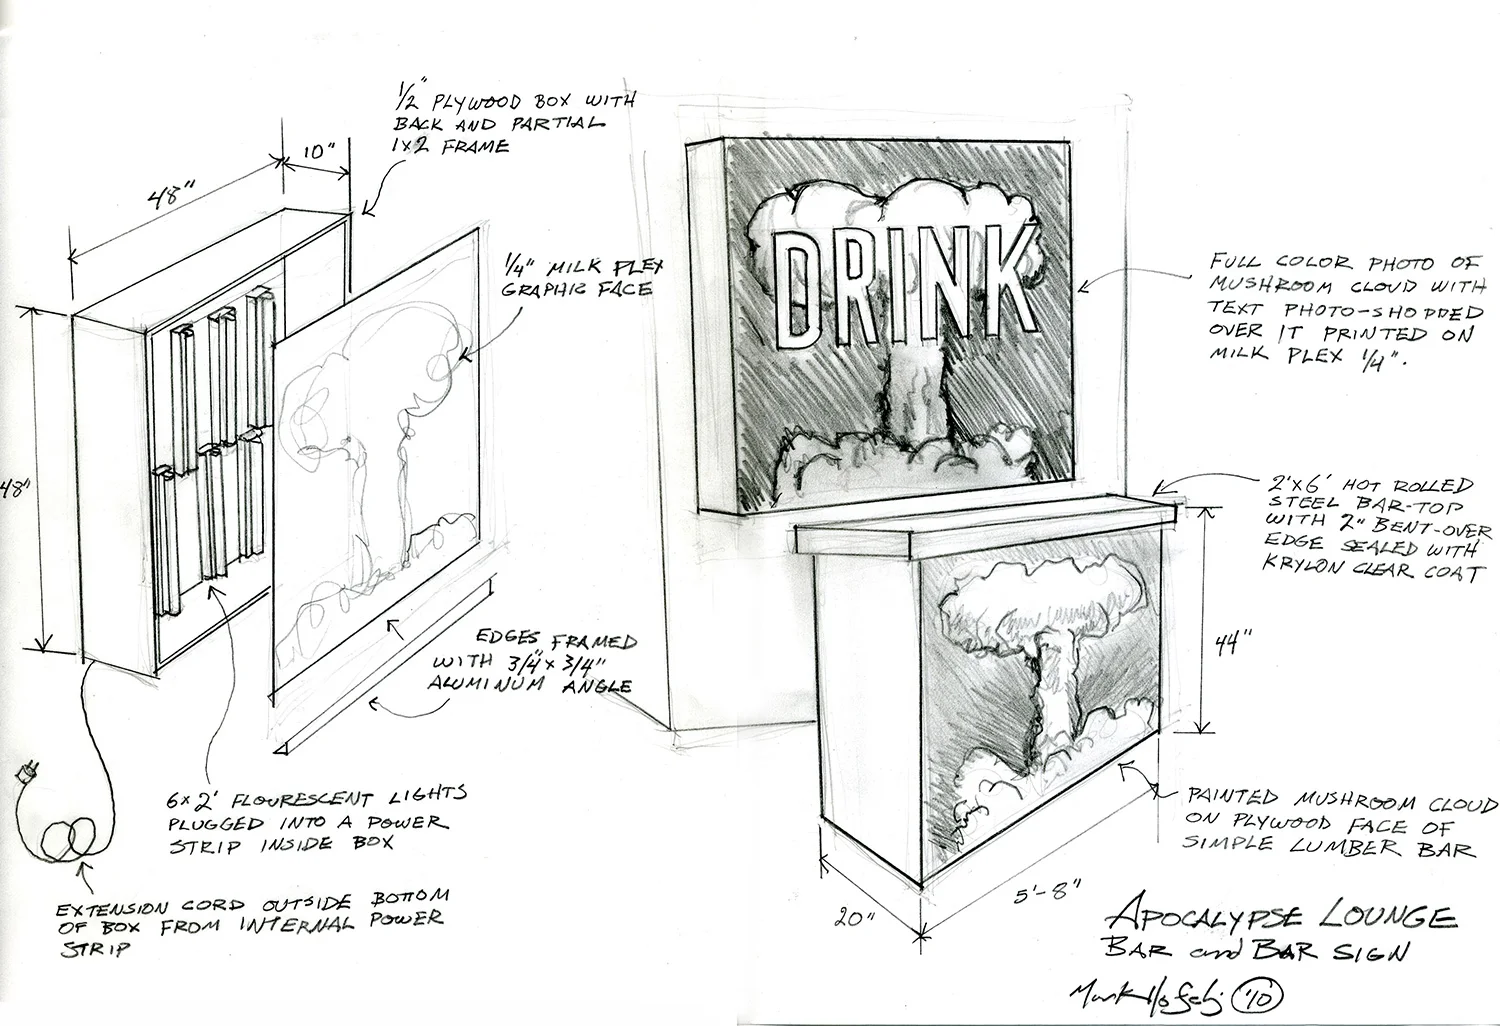 1/2" PLYWOOD BOX WITH
BACK AND PARTIAL
1x2 FRAME
10"
48"
48"
1/4" MILK PLEX
GRAPHIC FACE
EDGES FRAMED
WITH 3/4" x 3/4"
ALUMINUM ANGLE
6x2' FLOURESCENT LIGHTS
PLUGGED INTO A POWER
STRIP INSIDE BOX
EXTENSION CORD OUTSIDE BOTTOM
OF BOX FROM INTERNAL POWER
STRIP
DRINK
FULL COLOR PHOTO OF
MUSHROOM CLOUD WITH
TEXT PHOTO-SHOPPED
OVER IT PRINTED ON
MILK PLEX 1/4".
2'x6' HOT ROLLED
STEEL BAR-TOP
WITH 2" BENT-OVER
EDGE SEALED WITH
KRYLON CLEAR COAT
44"
PAINTED MUSHROOM CLOUD
ON PLYWOOD FACE OF
SIMPLE LUMBER BAR
5'-8"
20"
APOCALYPSE LOUNGE
BAR and BAR SIGN
Mark '10